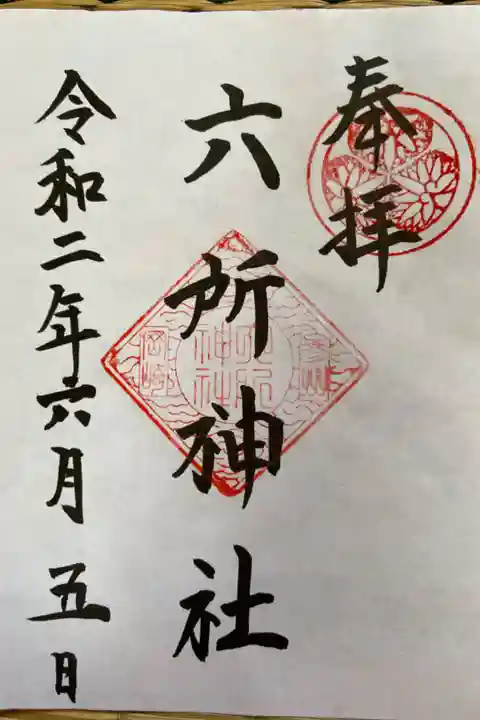 奉拝
六所神社
岡崎
六所
神社
令和二年六月五日